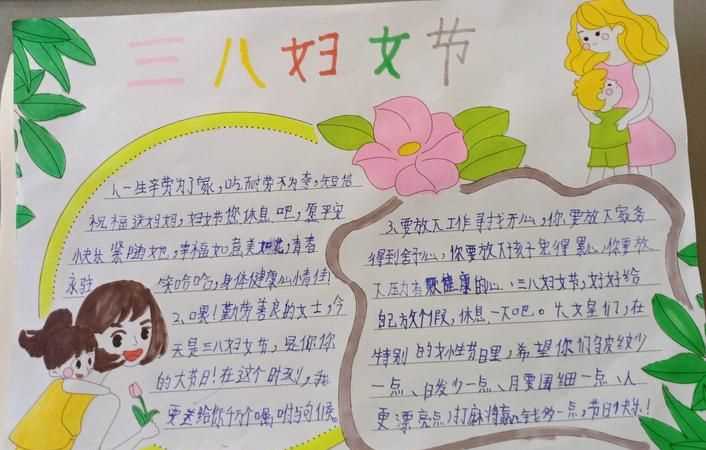 三八妇女节
1、一生辛劳为了家,吃耐劳不为夸,短信
祝福送妈妈,妇女节您休息吧,愿平安
快乐紧随她,幸福如意美如花,青春
永驻 笑哈哈,身体健康心情佳!
2、嘿!勤劳善良的女士,今
天是三八妇女节,是你
的大节日!在这个时刻,我
要送给你千万个嘱咐与问候。
3、要放下工作寻找开心,你要放下家务
得到舒心,你要放下孩子忘得累心,你要放
下压力有颗健康的心,三八妇女节,好好给
自己放个假,休息一天吧。4、女皇们,在
特别的女性节日里,希望你们皱纹少
一点、白发少一点、月要围细一点、人
更漂亮点,打麻将赢金钱多一点,节日快乐!